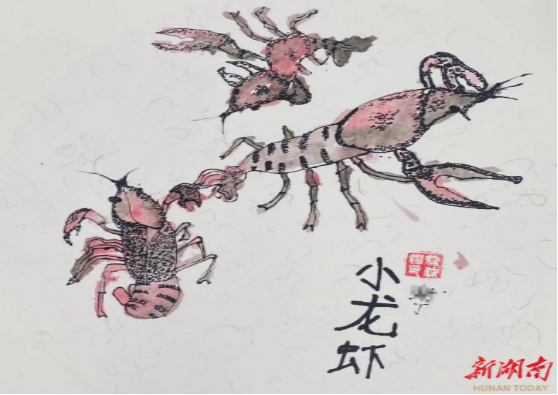 小龙虾
新湖南
HUNAN TODAY